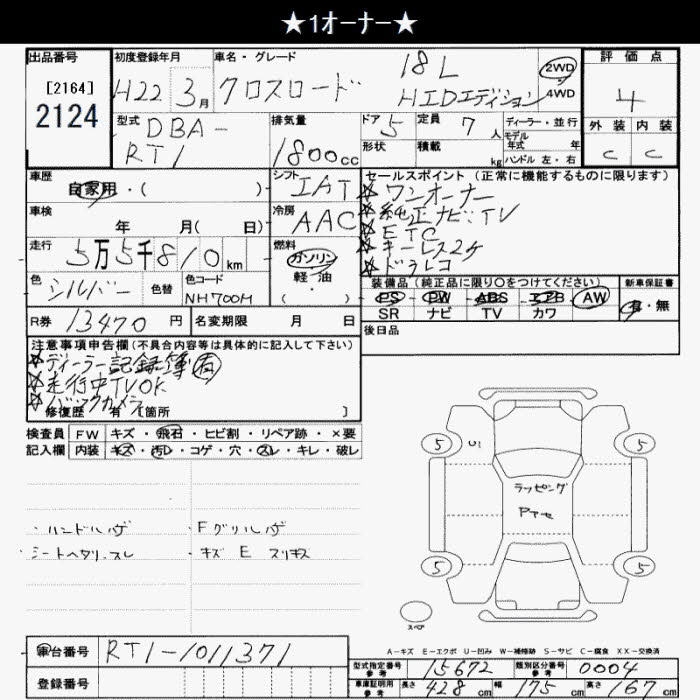 ★1オーナー★
出品番号 初度登録年月 車名・グレード 評価点
[2164]
2124
H22 3月 クロスロード 18L 2WD
HIDエディション 4WD
4
型式 排気量 ドア 定員 ディーラー・並行 外装 内装
DBA- 5 7人 モデル
RT1 1800cc 形状 積載 年式 年
kg ハンドル 左・右 C C
車歴 シフト セールスポイント (正常に機能するものに限ります)
自家用・( ) IAT ☆ワンオーナー
車検 冷房 ☆純正ナビ:TV
年 月( 日) AAC ☆ETC
走行 燃料 ☆キーレス2ケ
5万5千810km ガソリン ☆ドラレコ
色 色替 色コード 軽油
シルバー NH700M ( )
装備品 (純正品に限り○をつけてください) 新車保証書
PS PW ABS エアB AW 有・無
SR ナビ TV カワ
R券 13470円 名変期限 月 日
後日品
注意事項申告欄(不具合内容等は具体的に記入して下さい)
☆ディーラー記録簿有
☆走行中TVOK
☆バックカメラ
修復歴 有 [箇所 ]
検査員 FW キズ・飛石・ヒビ割・リペア跡・×要
記入欄 内装 キズ・汚レ・コゲ・穴・スレ・キレ・破レ
・ハンドルハゲ ・Fグリルハゲ
・シートヘタリ、スレ ・キズ E スリキズ
5 U1 5
ラッピング
Pマセ
5 5
スペア
A-キズ E-エクボ U-凹み W-補修跡 S-サビ C-腐食 XX-交換済
車台番号 RT1-1011371
登録番号
型式指定番号 参考 15672 類別区分番号 参考 0004
車庫証明用 参考 長さ 428cm 幅 175cm 高さ 167cm